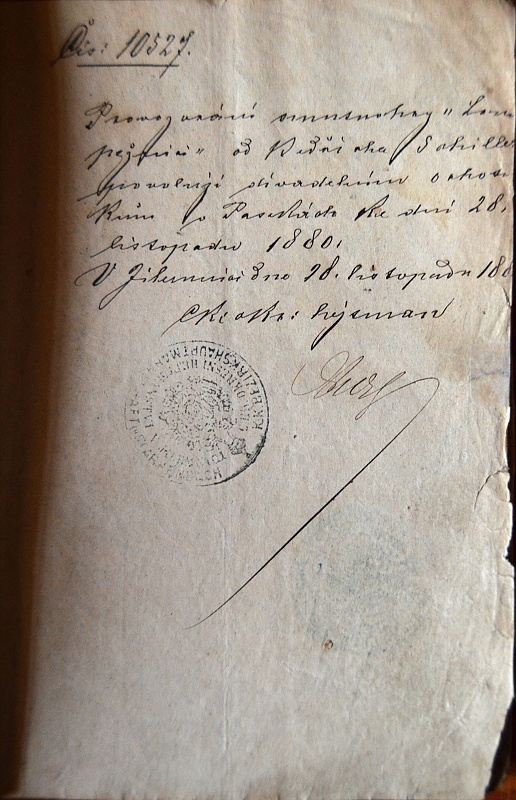 Čís: 10527.
Provozování smutnohry „Lou
pežníci" od Bedřicha Schille
povoluji divadelním ochot
níkům v Pasekách ke dni 28.
listopadu 1880.
V Jilemnici dne 28. listopadu 188
Ck: okr: hejtman
K.K. BEZIRKSHAUPTMANNSCHAFT